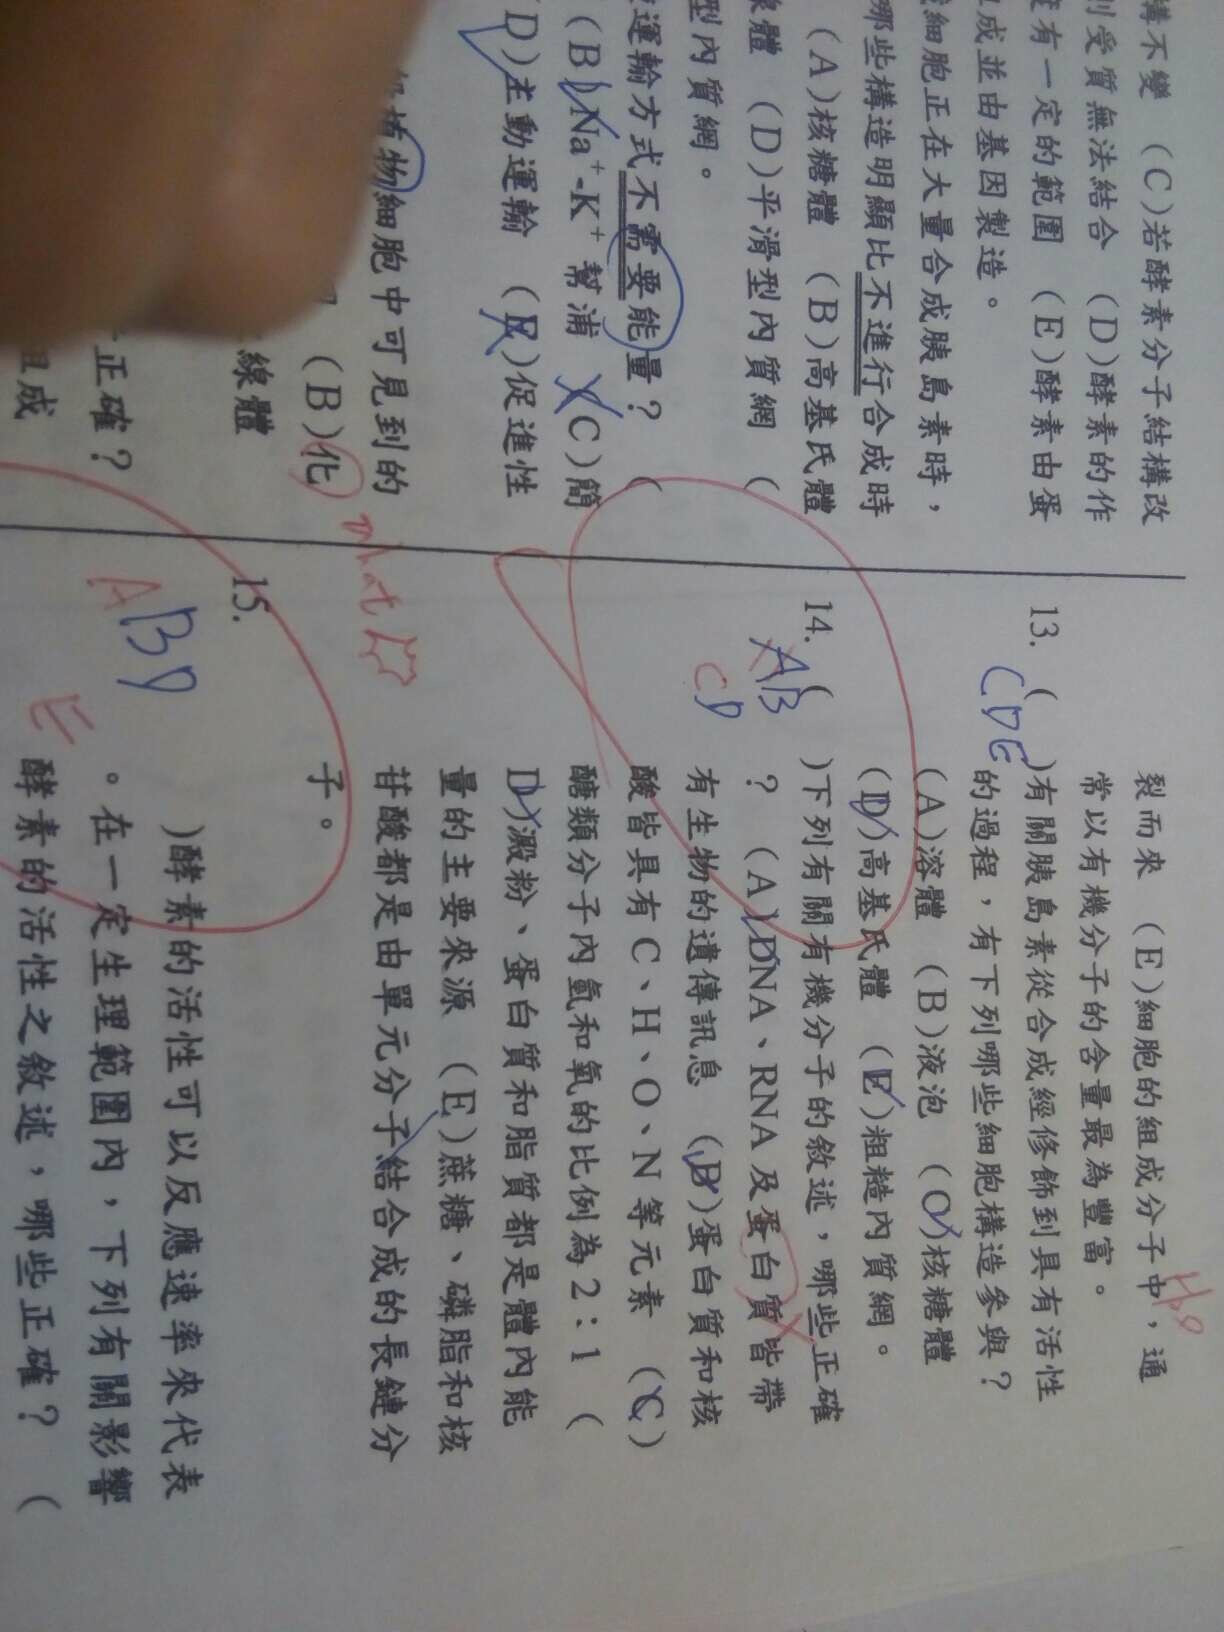 構不變 (C)若酵素分子結構改
則受質無法結合 (D)酵素的作
有一定的範圍 (E)酵素由蛋
成並由基因製造。
細胞正在大量合成胰島素時，
哪些構造明顯比不進行合成時
(A)核糖體 (B)高基氏體
線體 (D)平滑型內質網 (
型內質網。
運輸方式不需要能量？ (
(B)Na⁺-K⁺幫浦 (C)簡
D)主動運輸 (E)促進性
植物細胞中可見到的
(B)化
線體
正確？
組成
what
裂而來 (E)細胞的組成分子中，通
常以有機分子的含量最為豐富。
H₂O
13. ( )有關胰島素從合成經修飾到具有活性
CDE
的過程，有下列哪些細胞構造參與？
(A)溶體 (B)液泡 (C)核糖體
(D)高基氏體 (E)粗糙內質網。
14. ( )下列有關有機分子的敘述，哪些正確
AB
CD
？ (A)DNA、RNA及蛋白質皆帶
有生物的遺傳訊息 (B)蛋白質和核
酸皆具有C、H、O、N等元素 (C)
醣類分子內氫和氧的比例為2：1 (
D)澱粉、蛋白質和脂質都是體內能
量的主要來源 (E)蔗糖、磷脂和核
苷酸都是由單元分子結合成的長鏈分
子。
15. )酵素的活性可以反應速率來代表
ABD
E
。在一定生理範圍內，下列有關影響
酵素的活性之敘述，哪些正確？ (